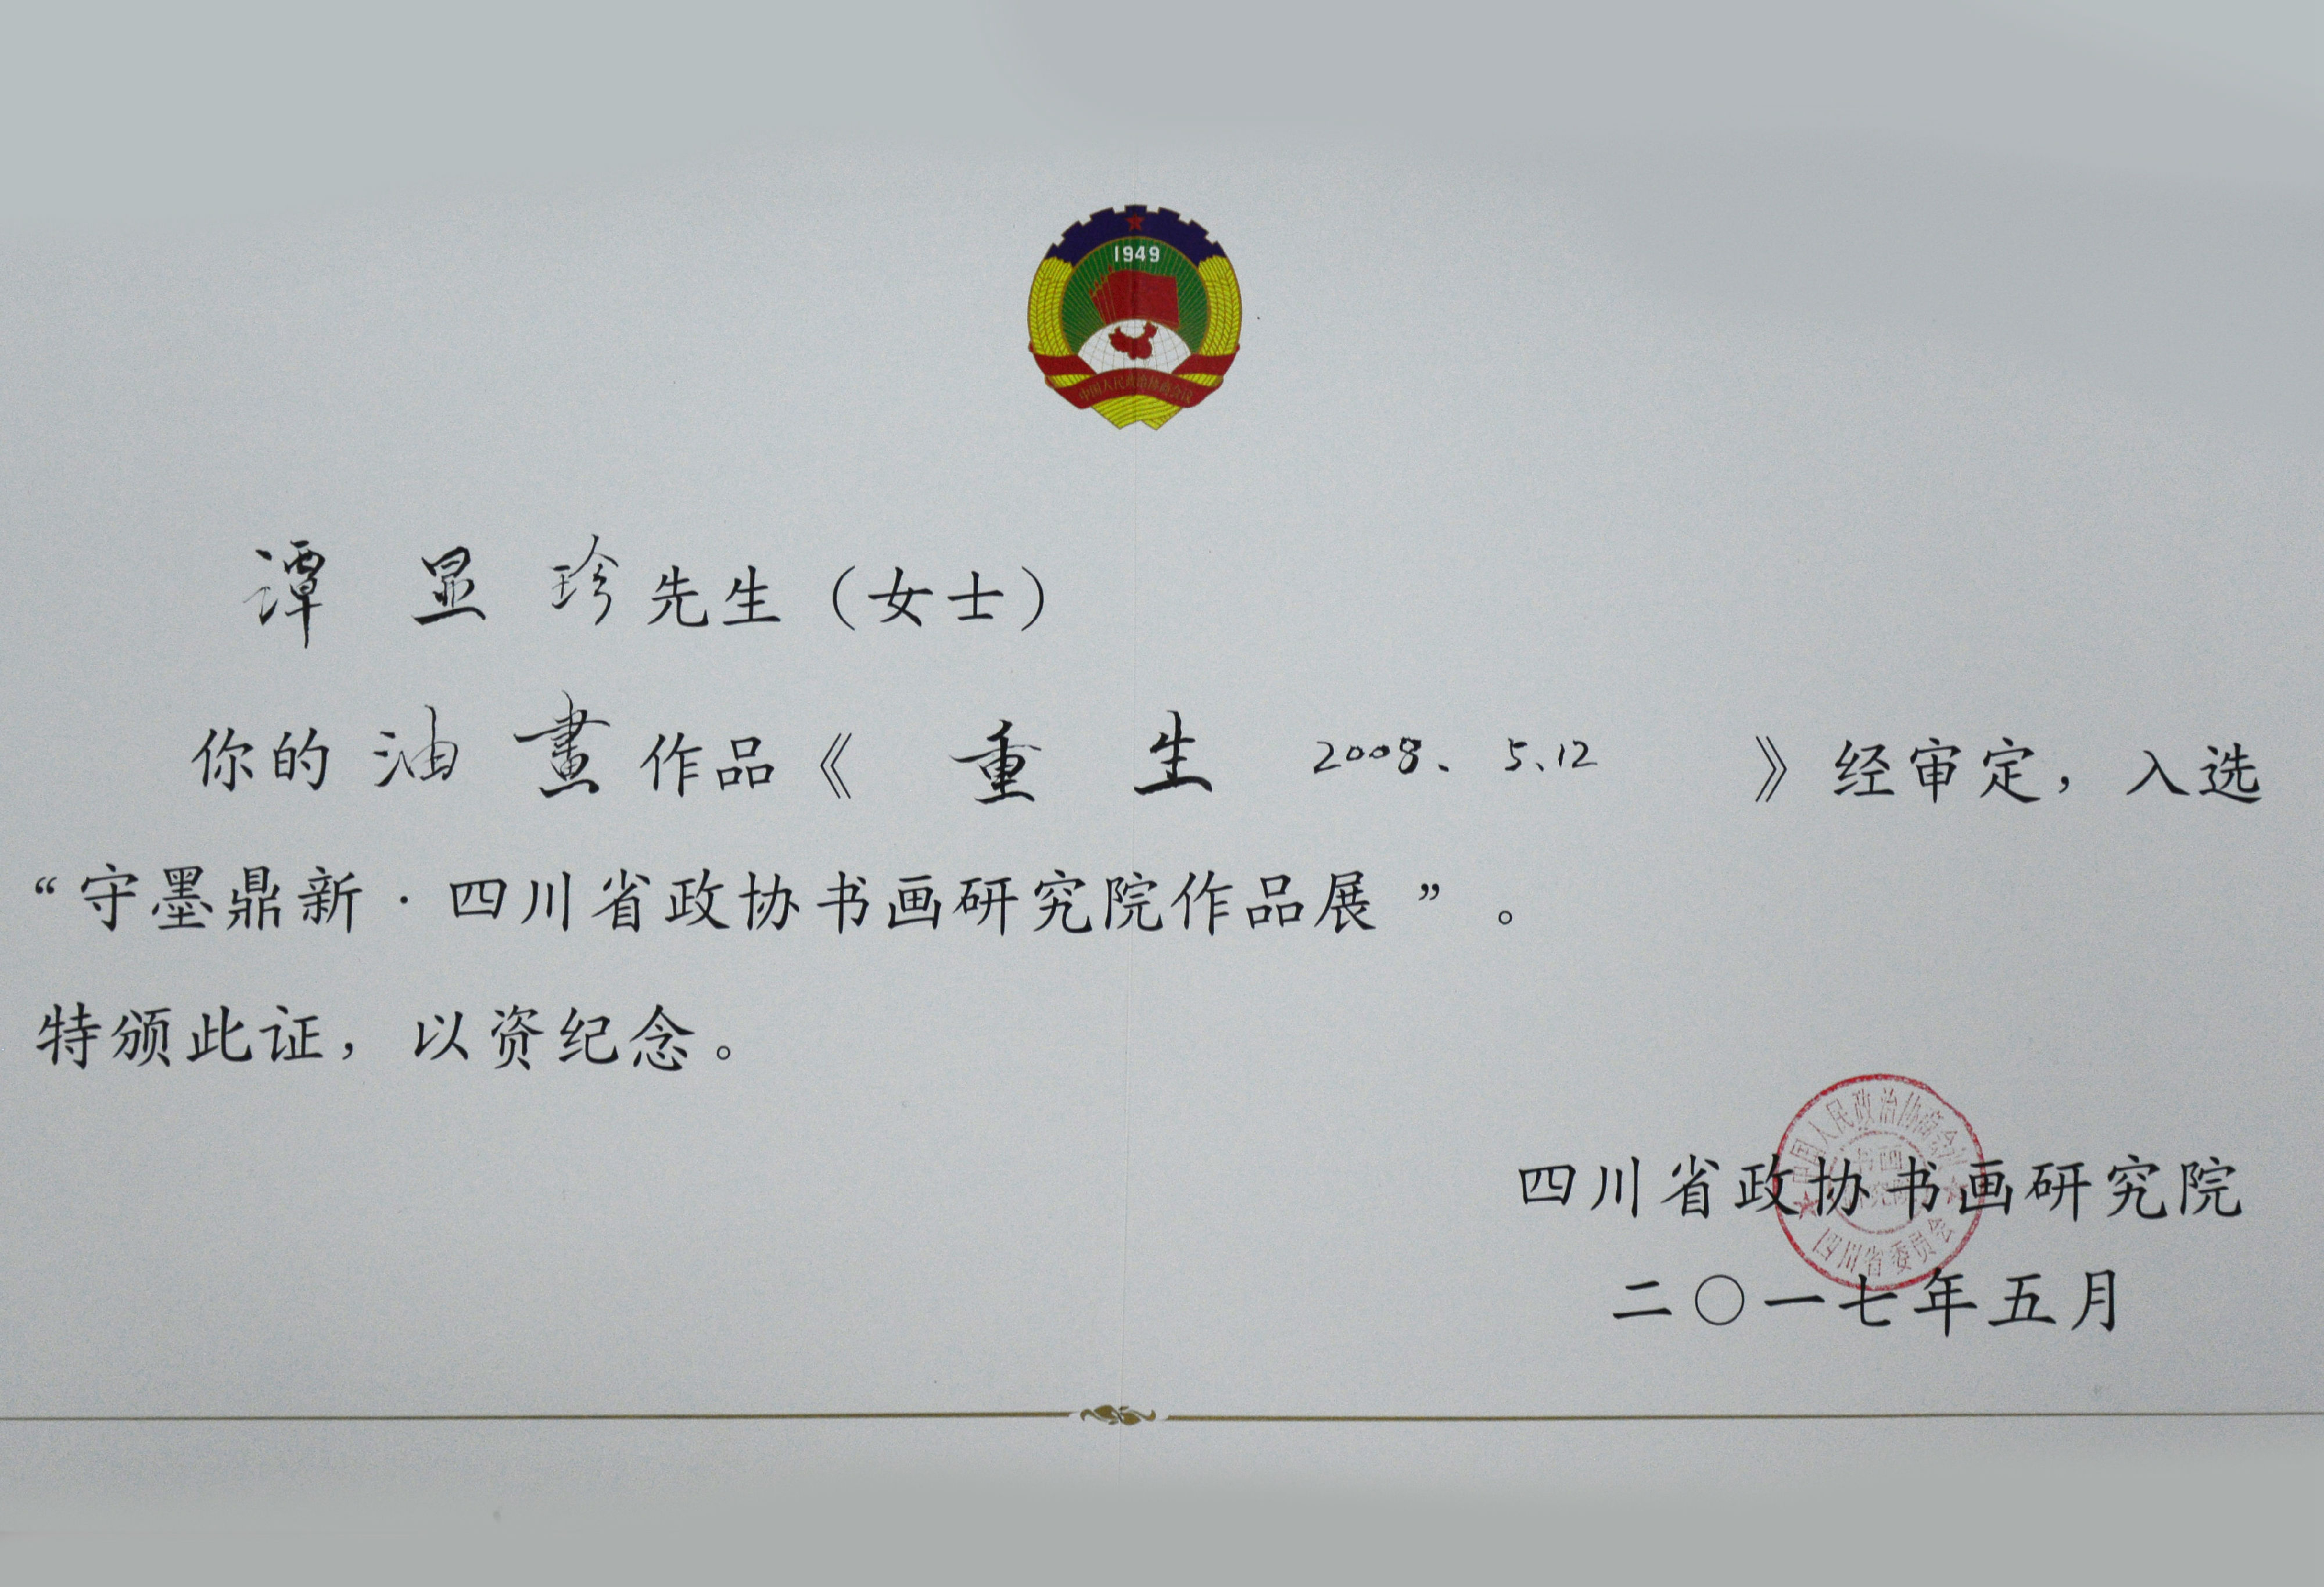 1949
中国人民政治协商会议
谭显珍先生（女士）
你的油畫作品《重生 2008、5、12》经审定，入选
“守墨鼎新·四川省政协书画研究院作品展”。
特颁此证，以资纪念。
中国人民政治协商会议
书画
四川省委员会
四川省政协书画研究院
二〇一七年五月